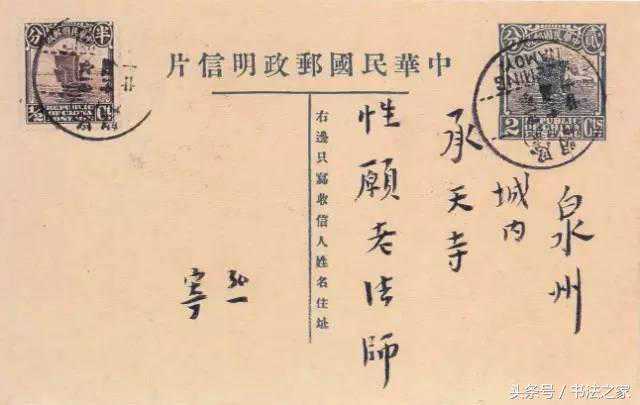 中華民國郵政明信片
貳分
2 Cts
半分
REPUBLIC
OF CHINA
½ Ct
泉州
城内
承天寺
性願老法師
右邊只寫收信人姓名住址
弘一
寄
头条号 / 书法之家